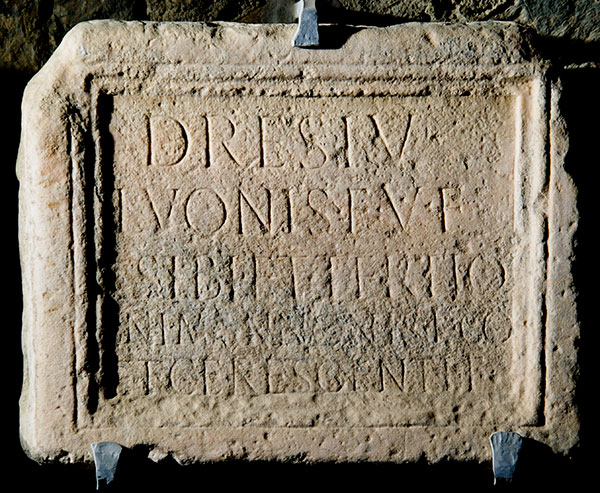 DRESIV
IVONIS F V F
SIBI ET TERTIO
NI
ET CERESCENTI F